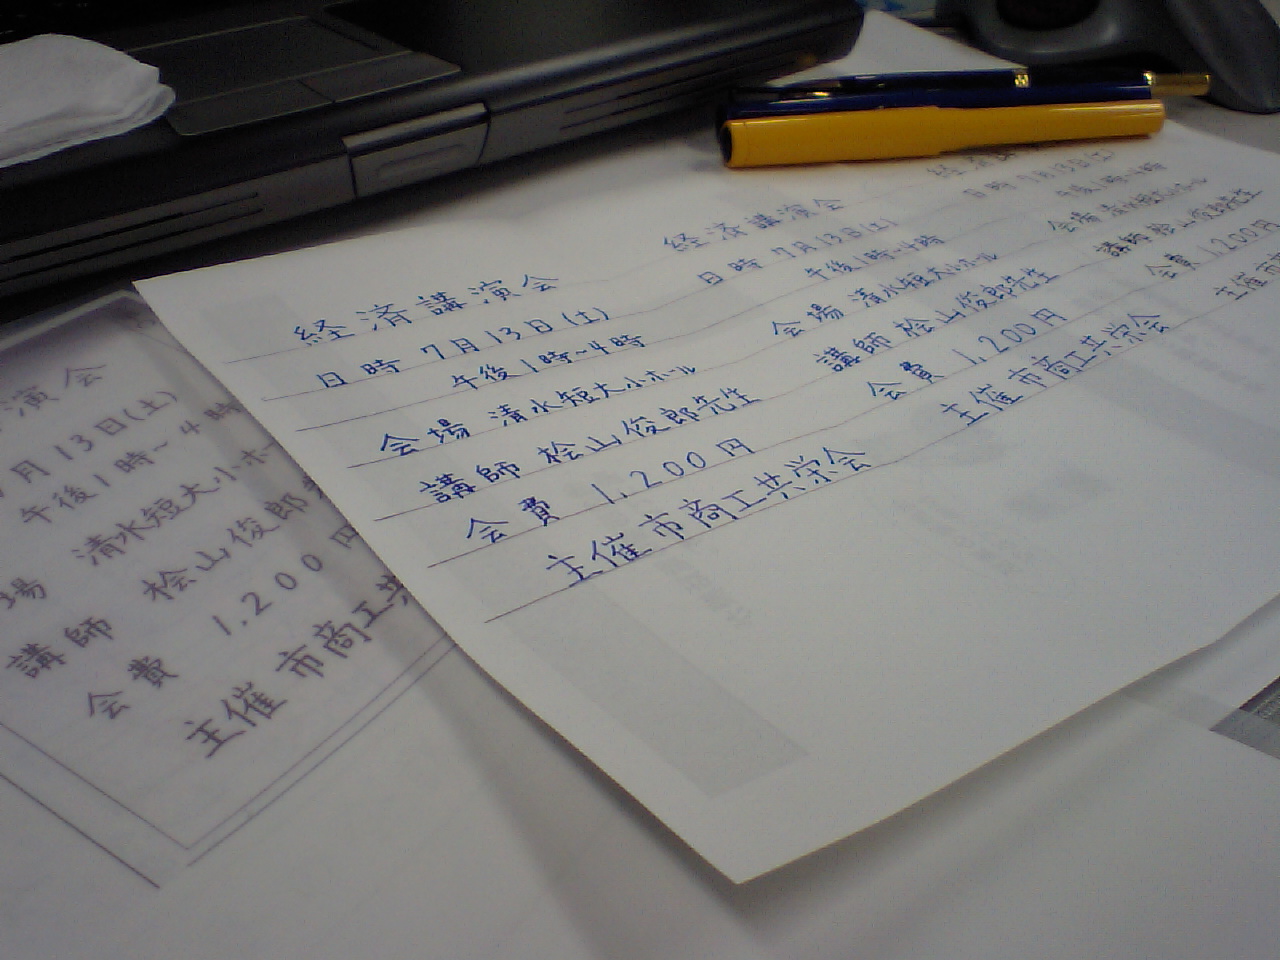 経済講演会
日時 7月13日(土)
午後1時~4時
会場 清水短大小ホール
講師 桧山俊郎先生
会費 1,200円
主催 市商工共栄会
経済講演会
日時 7月13日(土)
午後1時~4時
会場 清水短大小ホール
講師 桧山俊郎先生
会費 1,200円
主催 市商工共栄会
経済
日時 7月13日(土)
午後1時~4時
会場 清水短大小ホール
講師 桧山俊郎先生
会費 1,200円
主催 市商
演会
月13日(土)
午後1時~4時
場 清水短大小ホー
講師 桧山俊郎
会費 1,200円
主催 市商工共